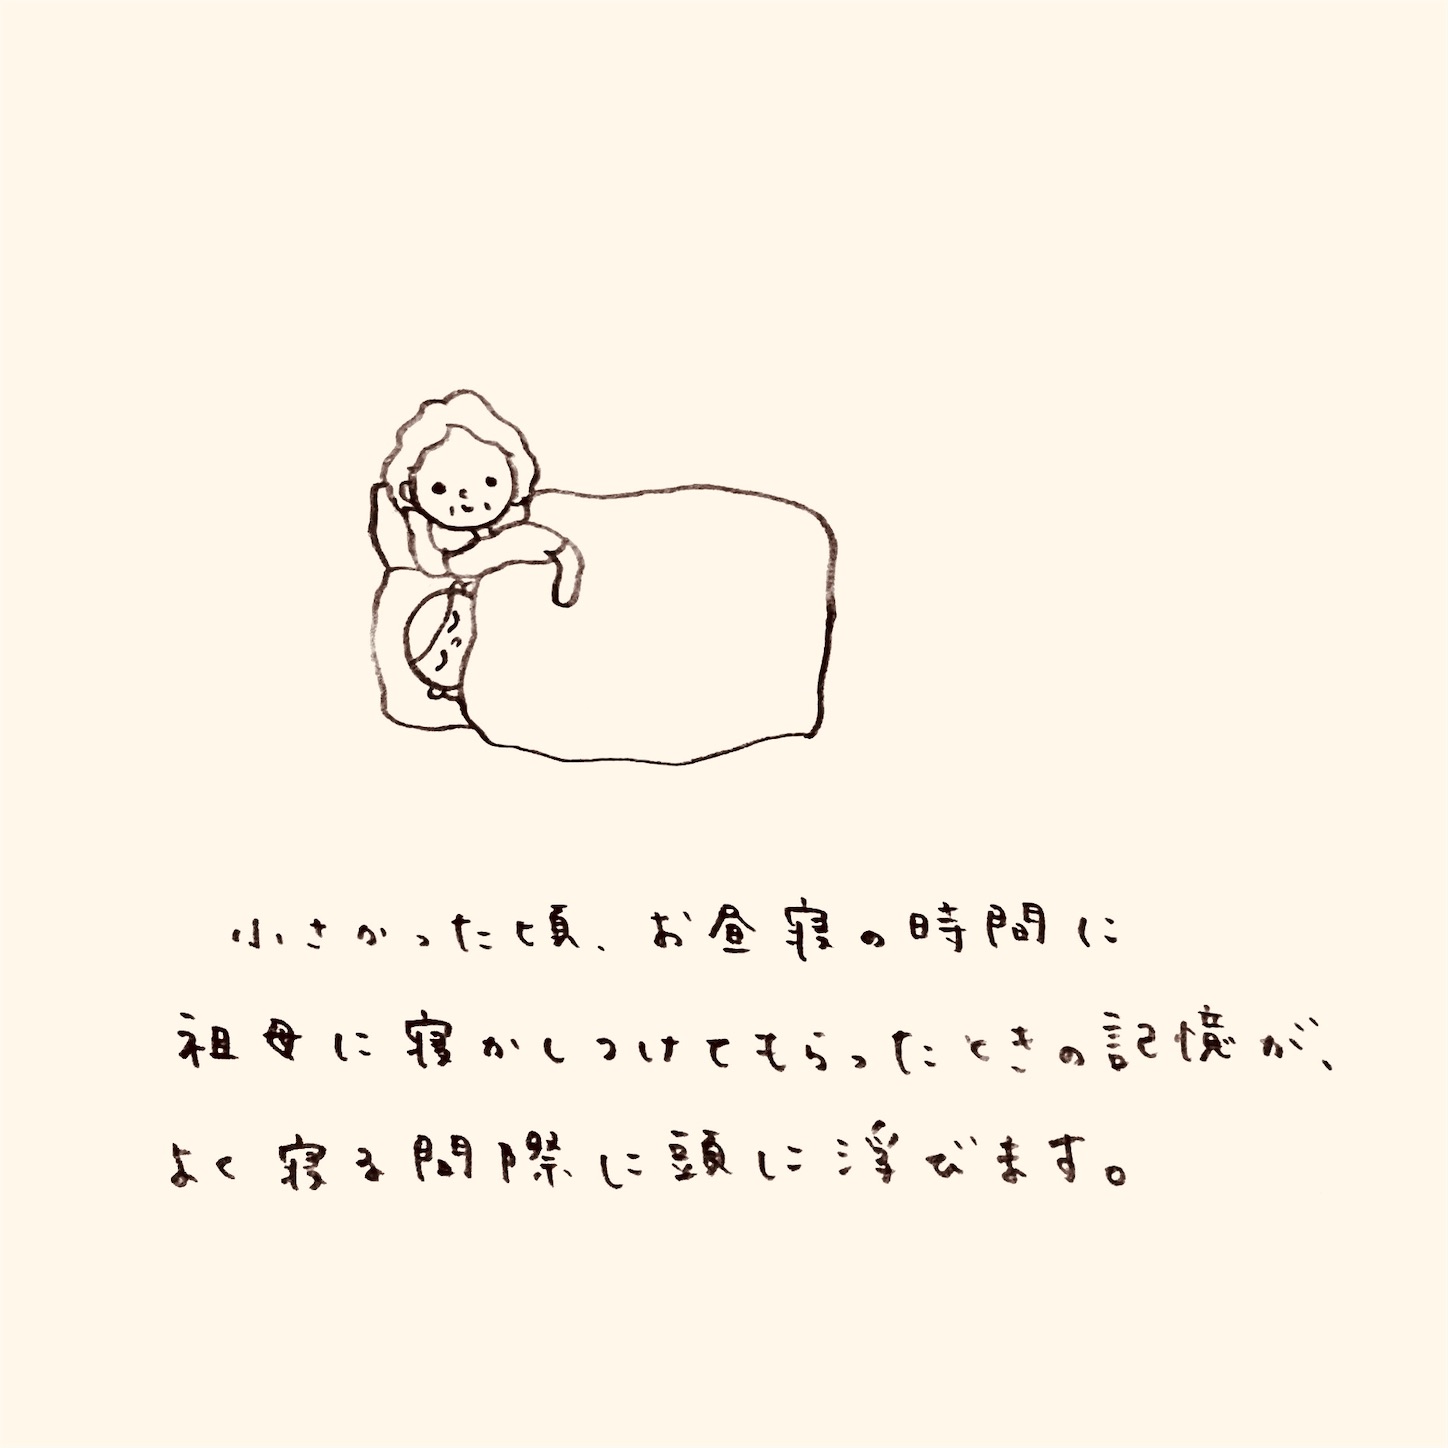 小さかった頃、お昼寝の時間に
祖母に寝かしつけてもらったときの記憶が、
よく寝る間際に頭に浮びます。